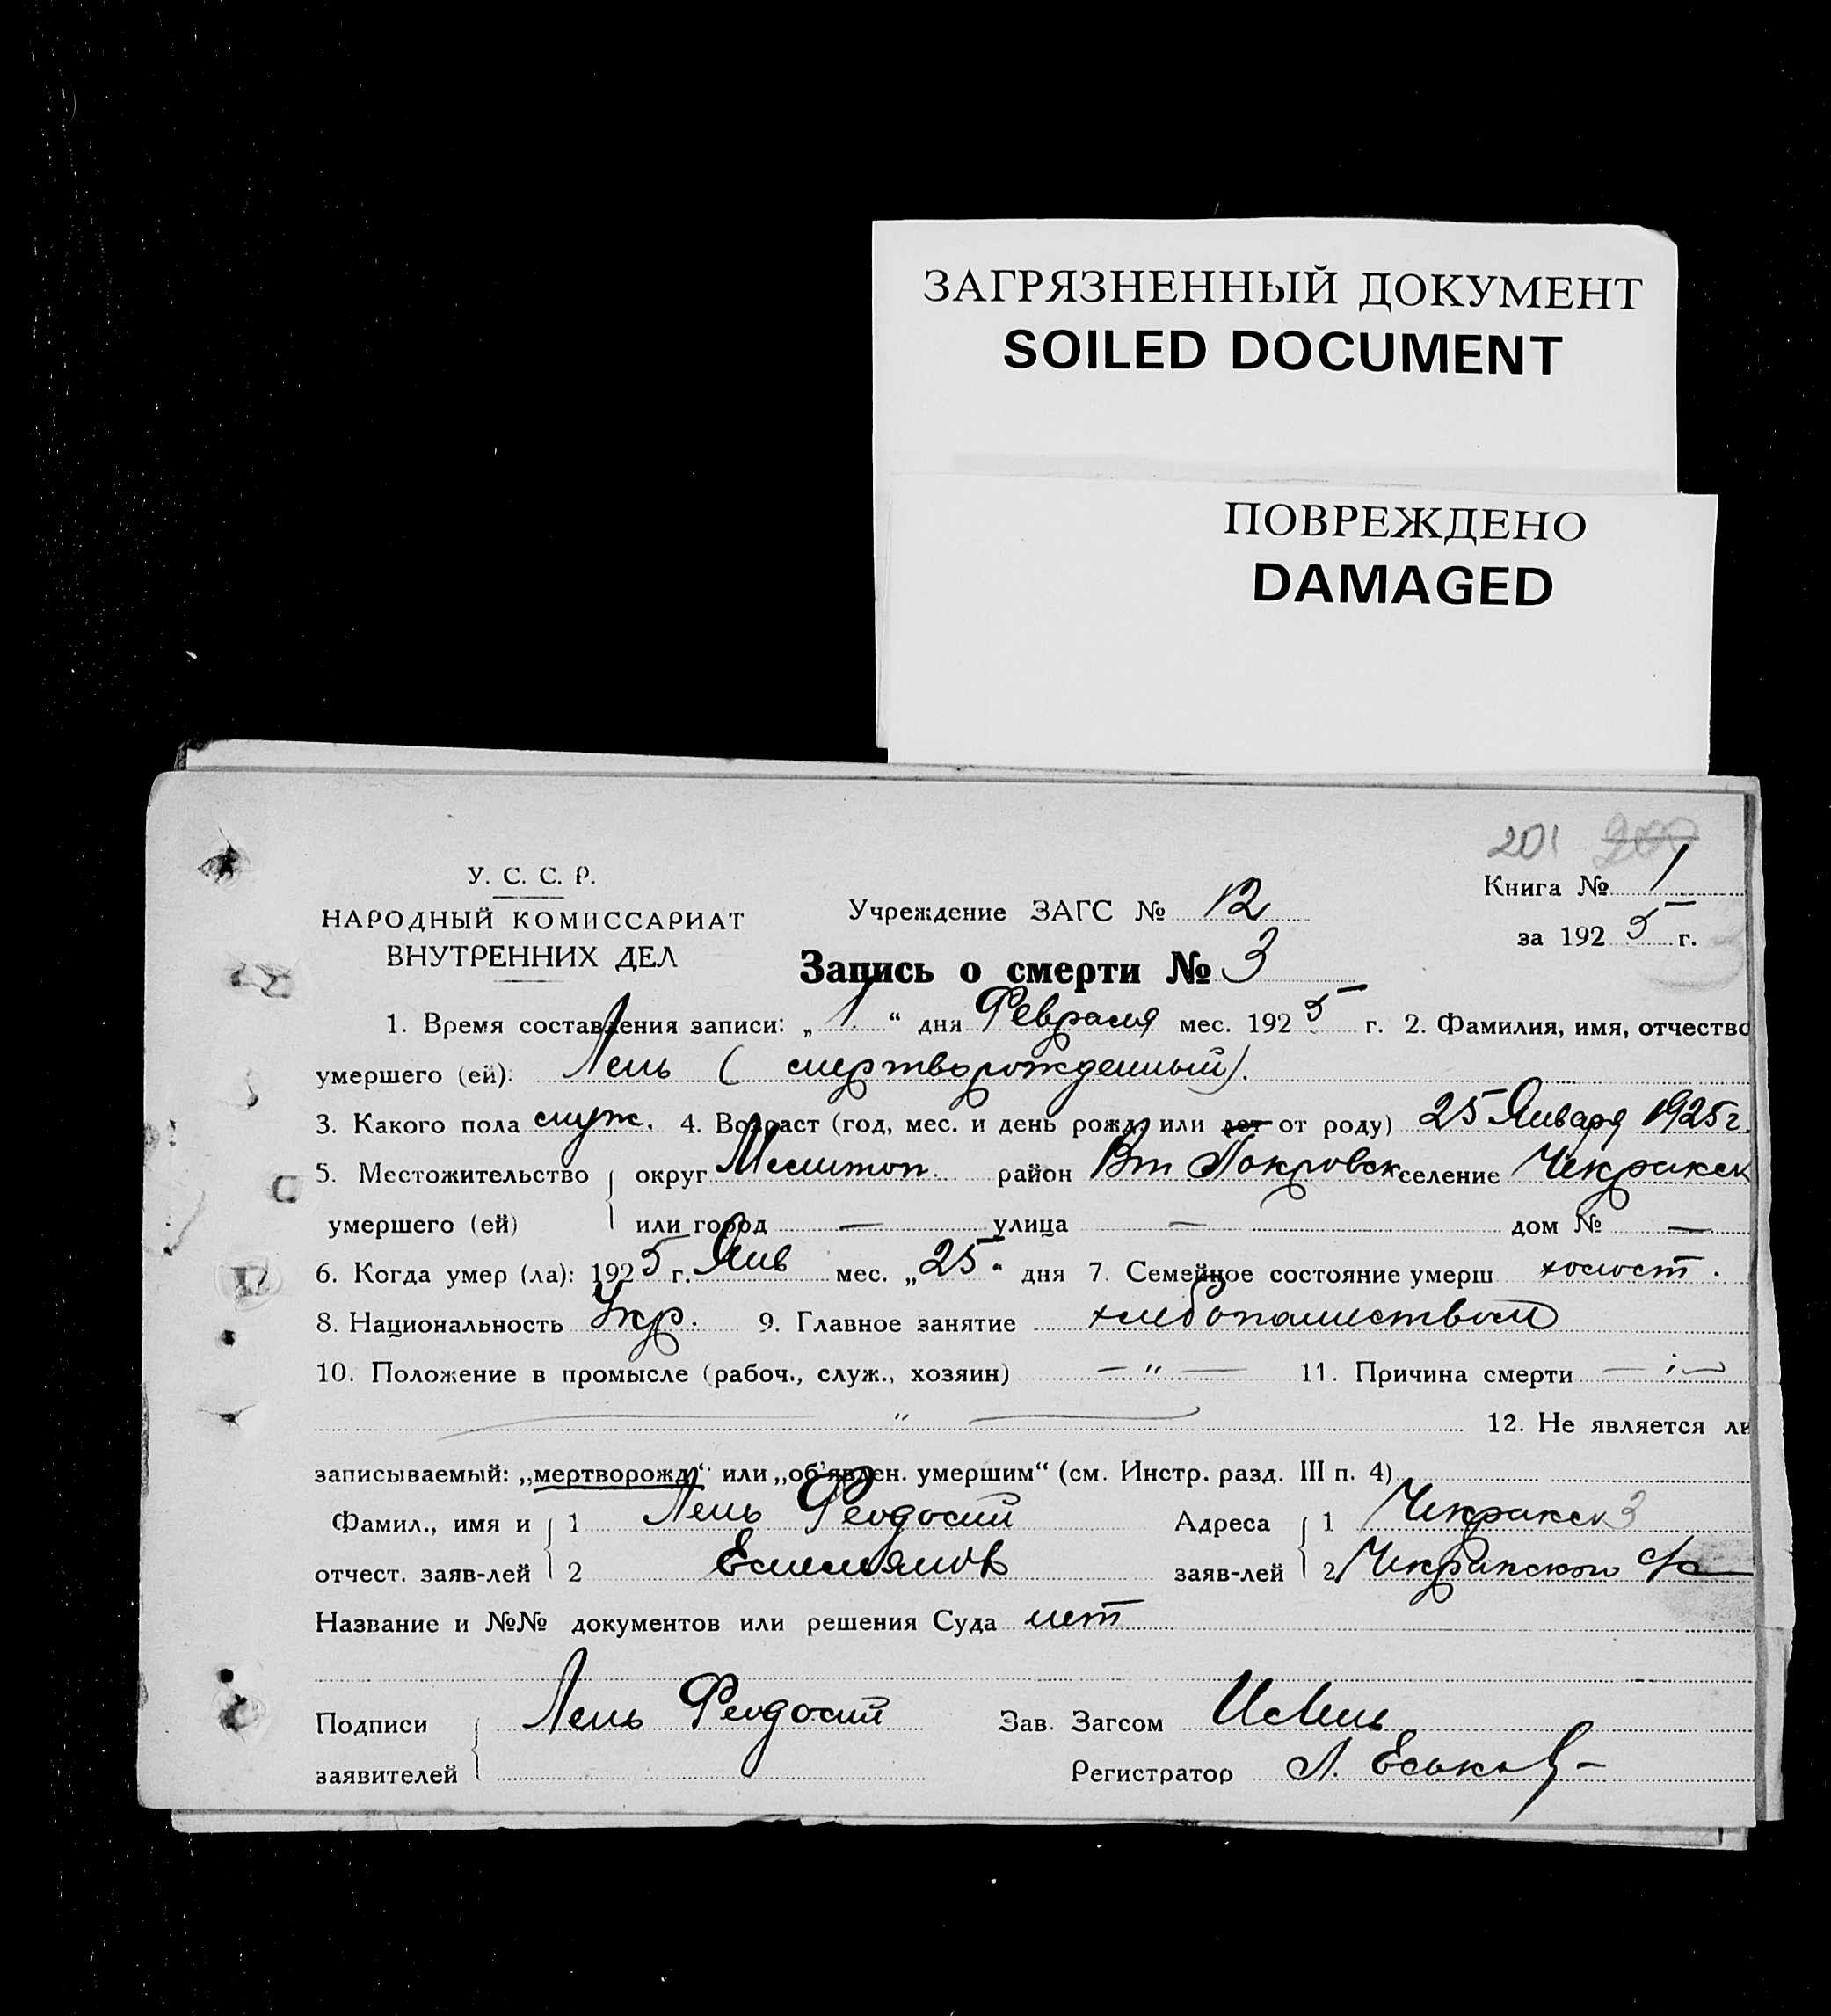 ЗАГРЯЗНЕННЫЙ ДОКУМЕНТ
SOILED DOCUMENT
ПОВРЕЖДЕНО
DAMAGED
201 200
У. С. С. Р.
НАРОДНЫЙ КОМИССАРИАТ
ВНУТРЕННИХ ДЕЛ
Учреждение ЗАГС № 12
Книга № 1
за 1925 г.
Запись о смерти № 3
1. Время составления записи: „1“ дня Февраля мес. 1925 г. 2. Фамилия, имя, отчество
умершего (ей): Лень (смертворожденный).
3. Какого пола муж. 4. Возраст (год, мес. и день рожд. или лет от роду) 25 Января 1925 г.
5. Местожительство округ Мелитоп. район Вт Покровск селение Чекракск
умершего (ей) или город — улица — дом № —
6. Когда умер (ла): 1925 г. Янв мес. „25“ дня 7. Семейное состояние умерш холост.
8. Национальность Укр. 9. Главное занятие хлебопашеством
10. Положение в промысле (рабоч., служ., хозяин) — „ — 11. Причина смерти —
12. Не является ли
записываемый: „мертворожд.“ или „об’явлен. умершим“ (см. Инстр. разд. III п. 4)
Фамил., имя и 1 Лень Феодосий Адреса 1 Чекракск
отчест. заяв-лей 2 Емельянов заяв-лей 2 Чекракского с/с
Название и №№ документов или решения Суда нет
Подписи Лень Феодосий Зав. Загсом
заявителей Регистратор Л. Еськов